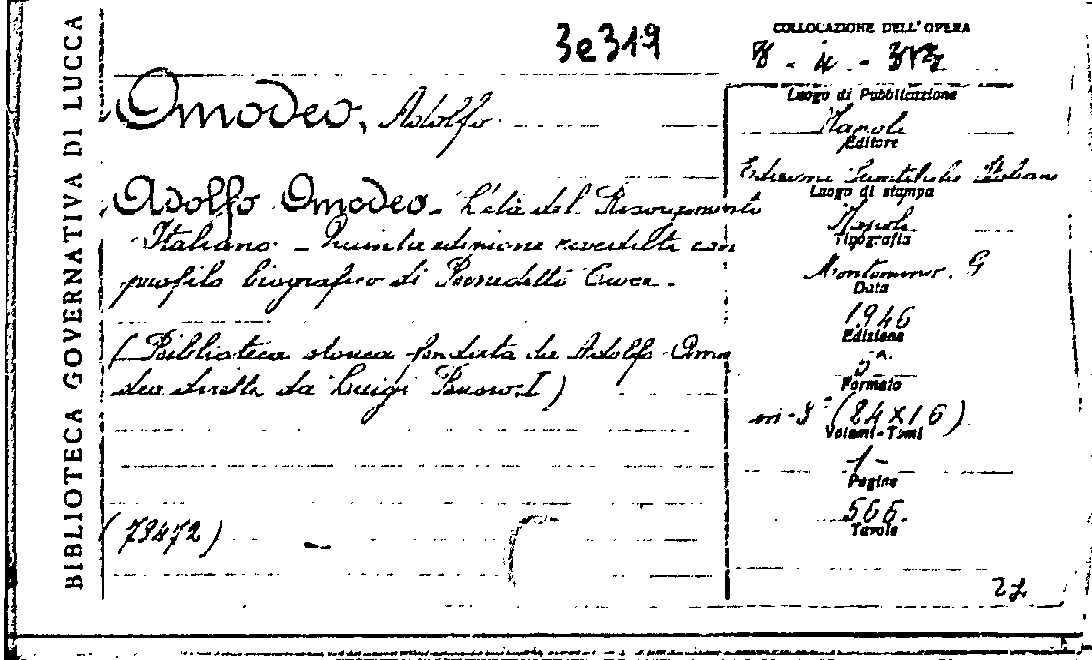 BIBLIOTECA GOVERNATIVA DI LUCCA
3e319
COLLOCAZIONE DELL'OPERA
Omodeo, Adolfo
Adolfo Omodeo - L'età del Risorgimento
Italiano - Quinta edizione riveduta con
profilo biografico di Benedetto Croce.
(Biblioteca storica fondata da Adolfo Omo
deo diretta da Luigi Russo. I)
(79472)
Luogo di Pubblicazione
Napoli
Editore
Edizione Scientifiche Italiane
Luogo di stampa
Napoli
Tipografia
G
Data
1946
Edizione
5ª
Formato
in-8° (24x16)
Volumi-Tomi
1 -
Pagine
566.
Tavole